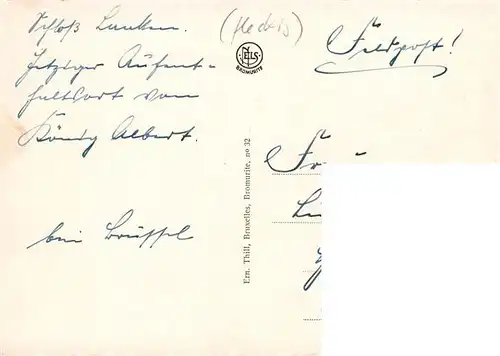 Schloß Lauken.
Jetziger Aufent-
haltsort von
König Albert.
bei Brüssel
NELS
BROMURITE
Feldpost!
Ern. Thill, Bruxelles, Bromurite, no 32